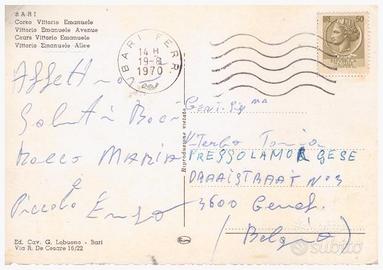 BARI
Corso Vittorio Emanuele
Vittorio Emanuele Avenue
Cours Vittorio Emanuele
Vittorio Emanuele Allee
BARI FERR.
14 H
19-8
1970
50
Affett
Saluti Baci
Rocco MARIA
Piccolo Enzo
Ed. Cav. G. Lobuono - Bari
Via R. De Cesare 16/22
Riproduzione vietata
GENT. ma
PRESSO LAMORGESE
DRAAISTRAAT N° 3
3600 Genk
(Belgio)
subito.it